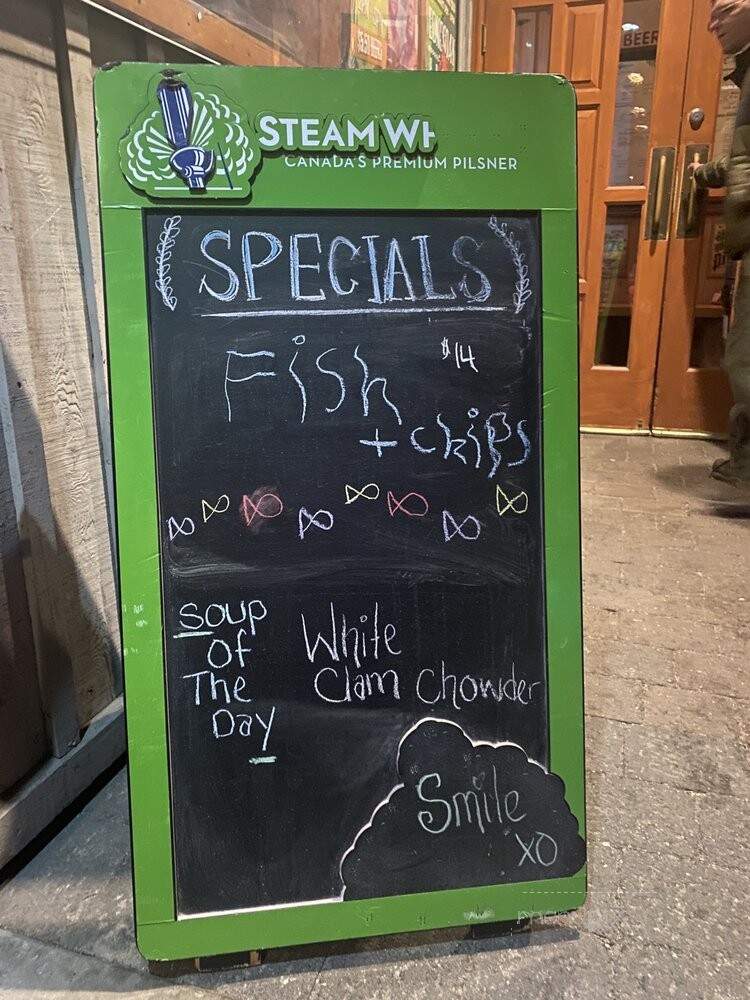 BEER
STEAM WH
CANADA'S PREMIUM PILSNER
SPECIALS
Fish $14
+ chips
Soup
Of
The
Day
White
Clam Chowder
Smile
XO